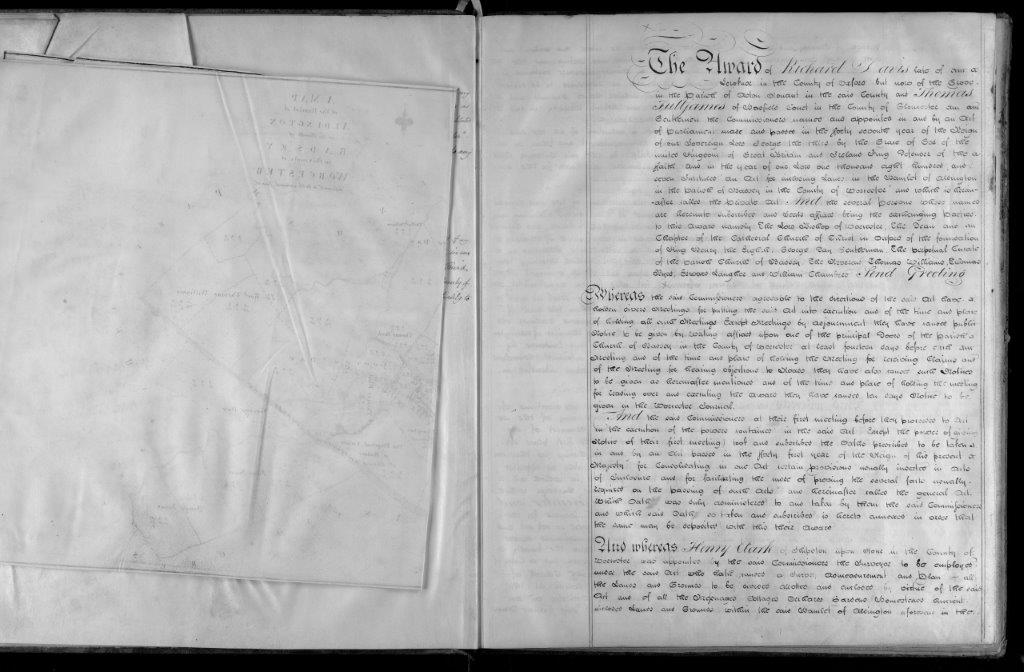 A MAP
of the Hamlet of
ALDINGTON
in the Parish of
BADSEY
in the County of
WORCESTER
The Award of Richard Davis late of
Lewknor in the County of Oxford but now of the Grove
in the Parish of Aston Rowant in the said County and Thomas
Fulljames of Hasfield Court in the County of Gloucester
Gentlemen the Commissioners named and appointed in and by an Act
of Parliament made and passed in the forty seventh year of the Reign
of our Sovereign Lord George the third by the Grace of God of the
united Kingdom of Great Britain and Ireland King Defender of the
Faith and in the year of our Lord one thousand eight hundred and
seven Intituled An Act for inclosing Lands in the Hamlet of Aldington
in the Parish of Badsey in the County of Worcester and which is herein
after called the Private Act And the several Persons whose names
are hereunto subscribed and Seals affixed being the exchanging Parties
to this Award namely The Lord Bishop of Worcester, The Dean and
Chapter of the Cathedral Church of Christ in Oxford of the foundation
of King Henry the Eighth, George Day Gentleman, The Perpetual Curate
of the Parish Church of Badsey, The Reverend Thomas Williams, Thomas
Byrd, Edward Langher and William Chambers Send Greeting
Whereas the said Commissioners agreeable to the directions of the said Act have
holden divers Meetings for putting the said Act into execution and of the time and place
of holding all such Meetings Except Meetings by adjournment they have caused public
Notice to be given by writing affixed upon one of the principal Doors of the Parish
Church of Badsey in the County of Worcester at least fourteen days before each
Meeting and of the time and place of holding the Meeting for receiving Claims and
of the Meeting for hearing objections to Claims they have also caused such Notices
to be given as hereinafter mentioned and of the time and place of holding the meeting
for reading over and executing the Award they have caused ten days Notice to be
given in the Worcester Journal.
And the said Commissioners at their first meeting before they proceeded to Act
in the execution of the powers contained in the said Act Except the power of giving
Notice of their first meeting took and subscribed the Oaths prescribed to be taken
in and by an Act passed in the forty first year of the Reign of his present
Majesty for Consolidating in one Act certain provisions usually inserted in Acts
of Inclosure and for facilitating the mode of proving the several facts usually
required on the passing of such Acts and hereinafter called the general Act.
Which Oath was duly administered to and taken by them the said Commissioners
and which said Oaths so taken and subscribed is hereto annexed in order that
the same may be deposited with this their Award
And whereas Henry Clark of Shipston upon Stour in the County of
Worcester was appointed by the said Commissioners the Surveyor to be employed
under the said Act who hath caused a Survey Admeasurement and Plan of all
the Lands and Grounds to be divided allotted and inclosed by virtue of the said
Act and of all the Messuages Cottages Orchards Gardens Homesteads Ancient
inclosed Lands and Grounds within the said Hamlet of Aldington aforesaid in the